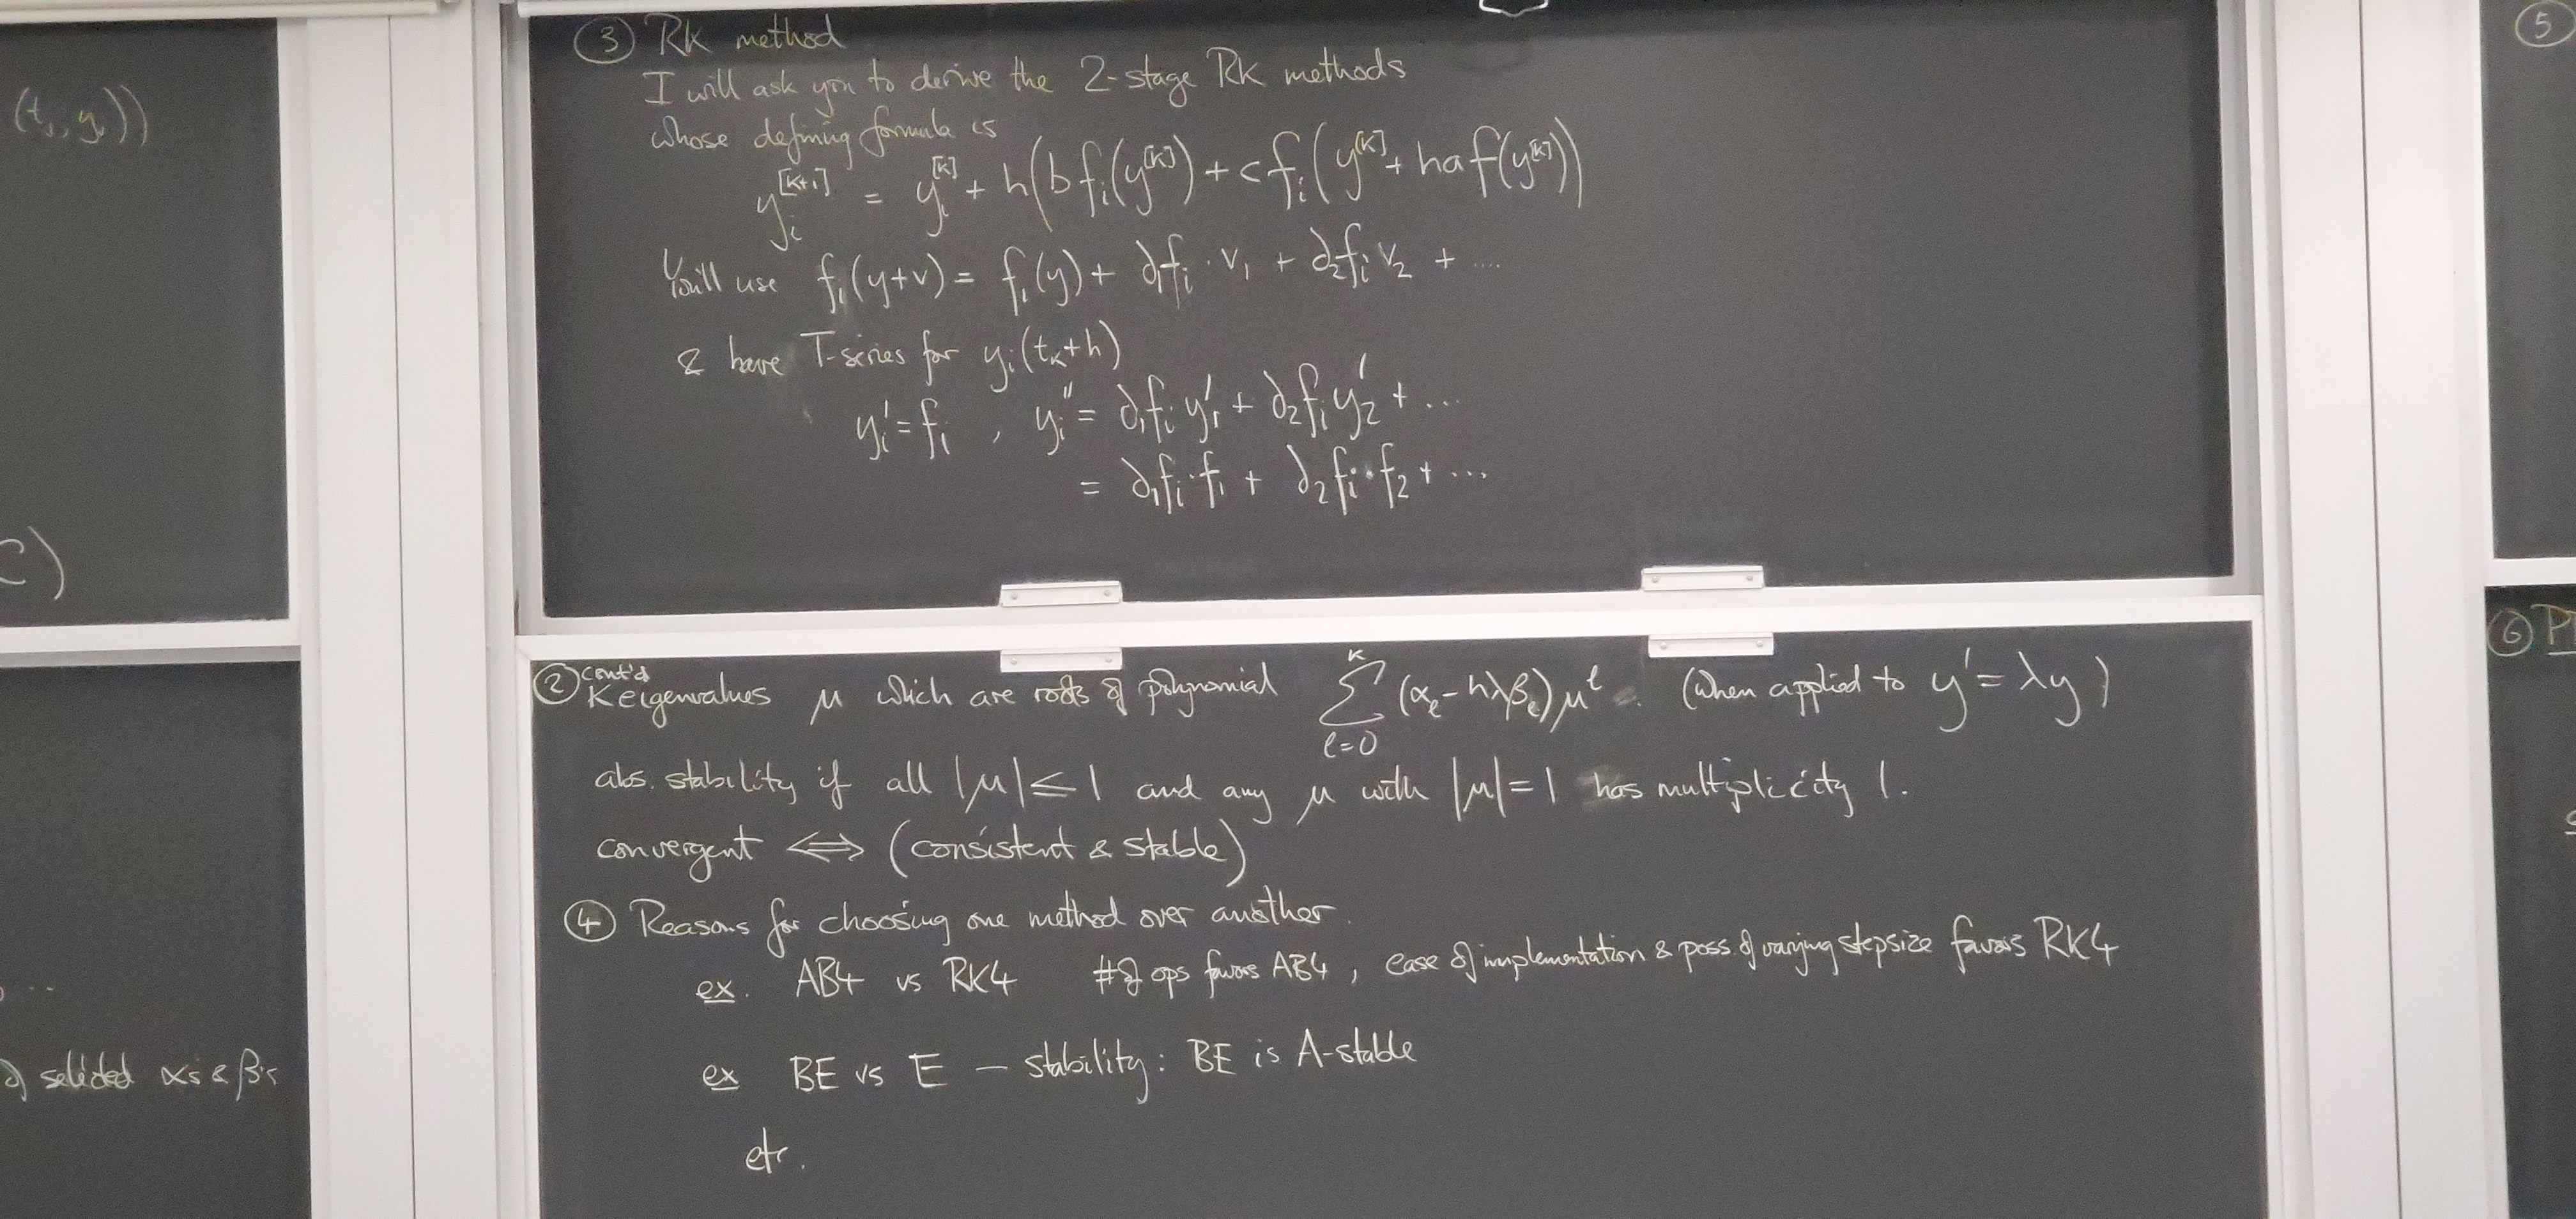 (t_s, y_s))
c)
...
selected α's & β's
③ RK method
I will ask you to derive the 2-stage RK methods
whose defining formula is
y_i^{[k+1]} = y_i^{[k]} + h(b f_i(y^{[k]}) + c f_i(y^{[k]} + ha f(y^{[k]}))
You'll use f_i(y+v) = f_i(y) + ∂_1f_i · v_1 + ∂_2f_i v_2 + ....
& have T-series for y_i(t_k+h)
y_i' = f_i , y_i'' = ∂_1f_i y_1' + ∂_2f_i y_2' + ...
= ∂_1f_i·f_1 + ∂_2f_i·f_2 + ...
② cont'd
K eigenvalues μ which are roots of polynomial Σ_{l=0}^{K} (α_l - hλβ_l) μ^l . (when applied to y' = λy)
abs. stability if all |μ| ≤ 1 and any μ with |μ| = 1 has multiplicity 1.
convergent ⟺ (consistent & stable)
④ Reasons for choosing one method over another.
ex. AB4 vs RK4 # of ops favors AB4, ease of implementation & poss of varying stepsize favors RK4
ex BE vs E — stability: BE is A-stable
etc.
⑤
⑥